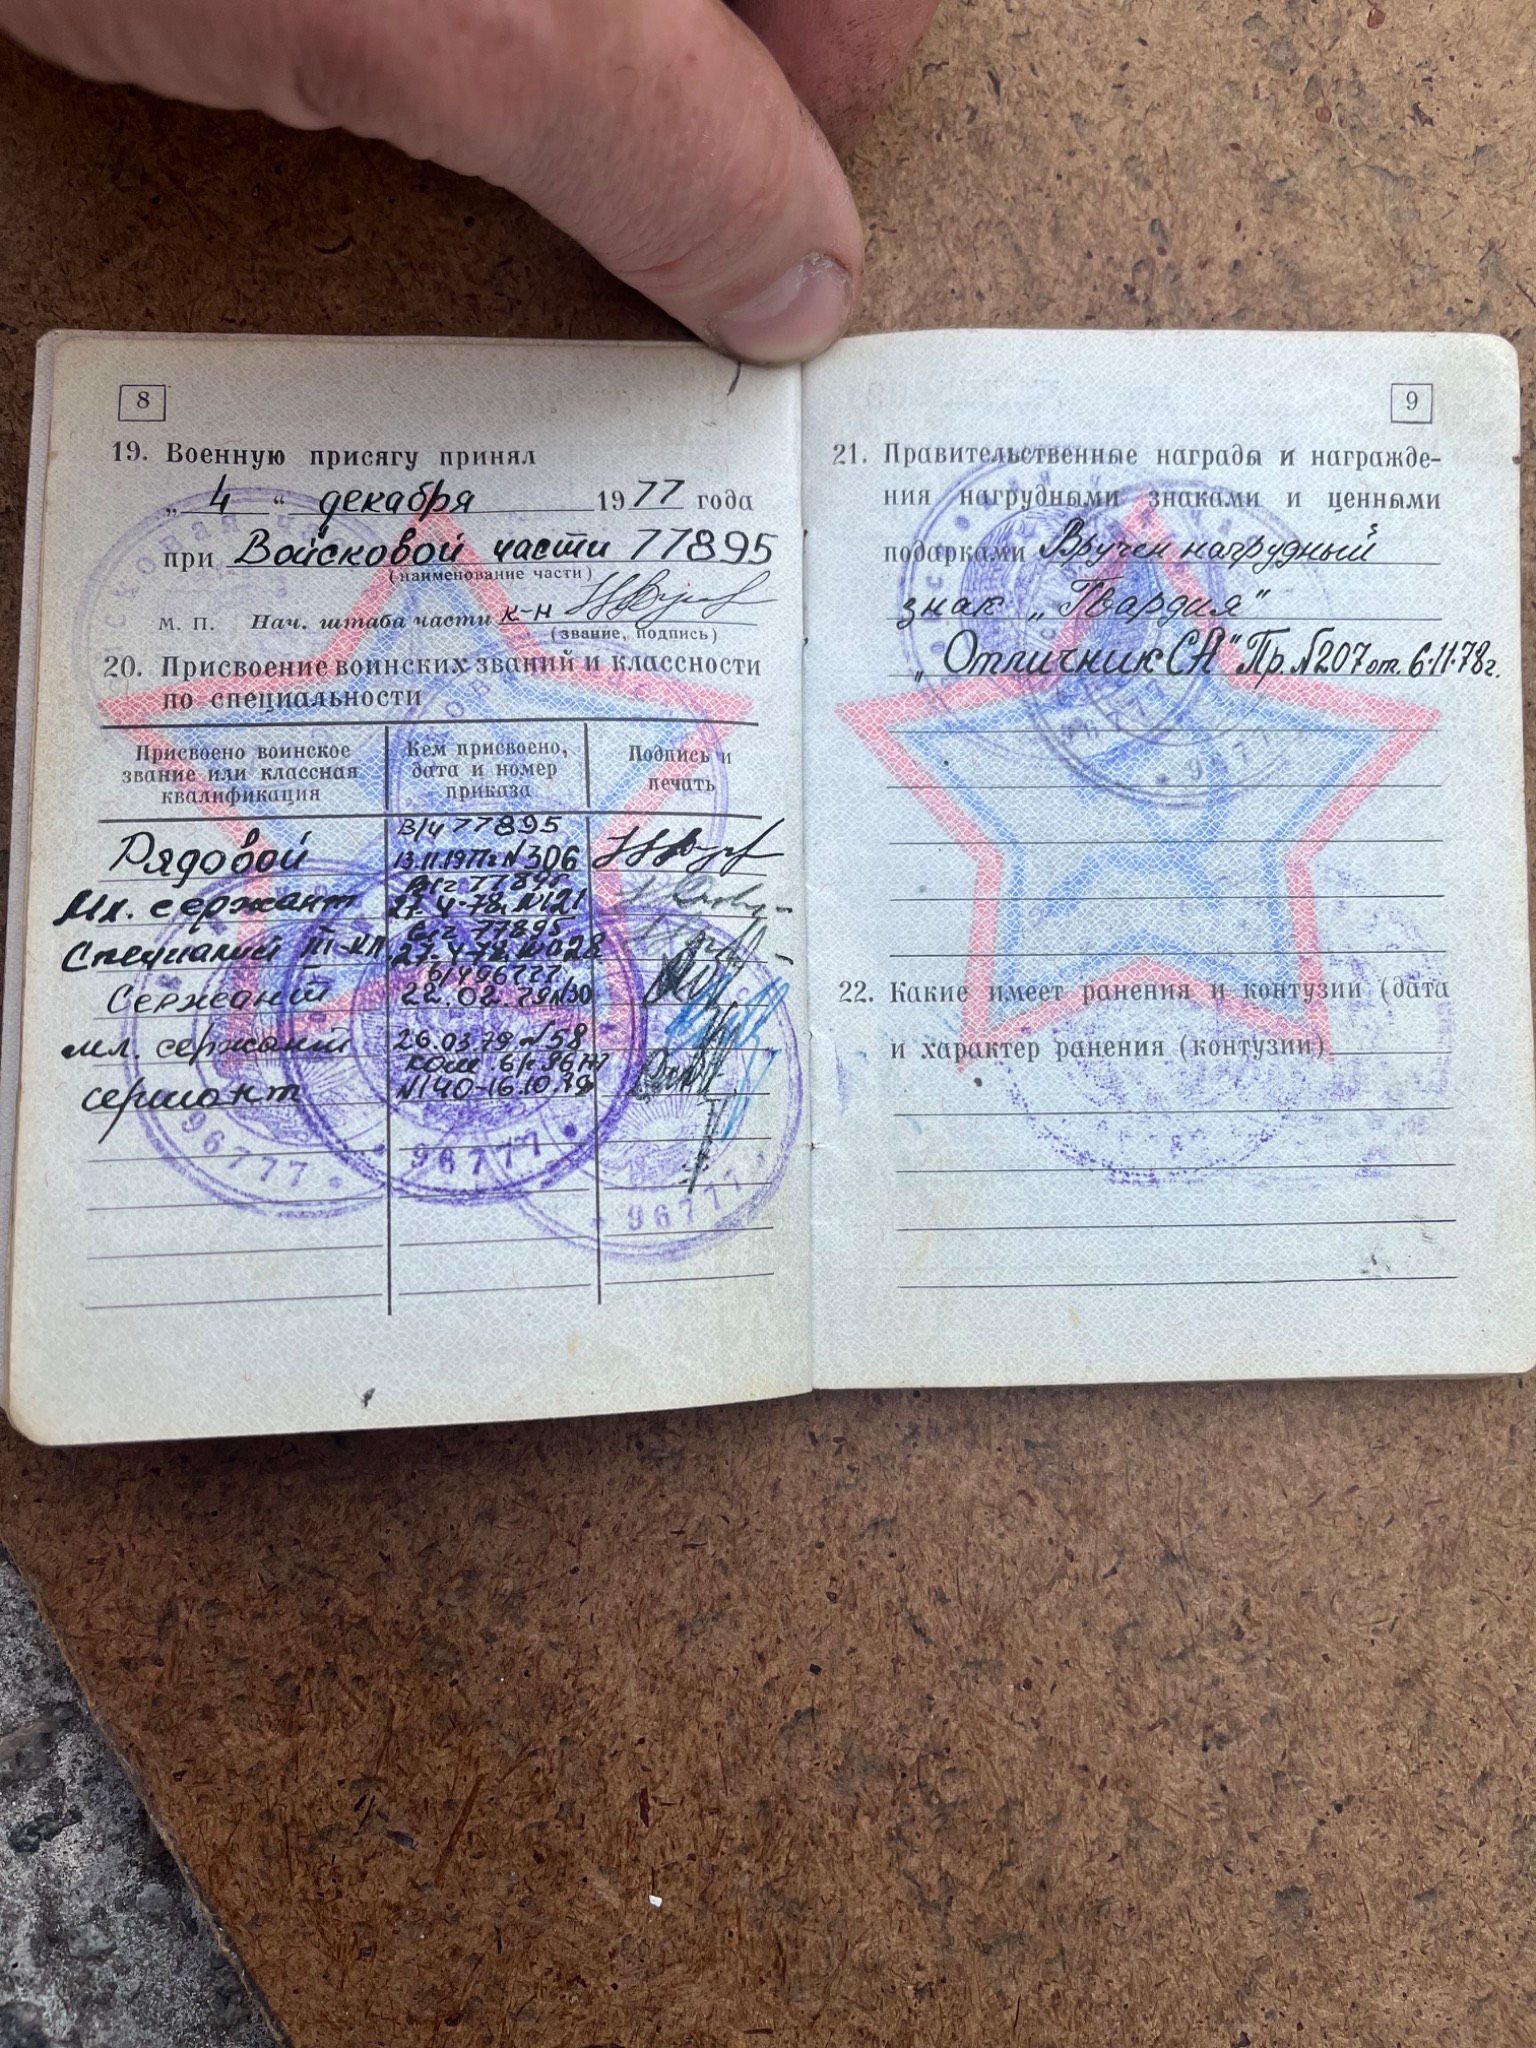 8
19. Военную присягу принял
„ 4 “ декабря 1977 года
при Войсковой части 77895
(наименование части)
М. П. Нач. штаба части к-н
(звание, подпись)
20. Присвоение воинских званий и классности
по специальности
Присвоено воинское звание или классная квалификация
Кем присвоено, дата и номер приказа
Подпись и печать
в/ч 77895
Рядовой 13.11.1977г. №306
в/ч 77895
Мл. сержант 27.4.78г. №121
в/ч 77895
Специалист III-кл. 27.4.78г.
в/ч 96777
Сержант 22.02.79 №30
мл. сержант 26.03.79 №58
ком. в/ч 96777
сержант №140-16.10.79
96777
96777
96777
9
21. Правительственные награды и награжде-
ния нагрудными знаками и ценными
подарками Вручен нагрудный
знак „Гвардия“
„Отличник СА“ Пр. №207 от. 6.11.78г.
22. Какие имеет ранения и контузии (дата
и характер ранения (контузии)